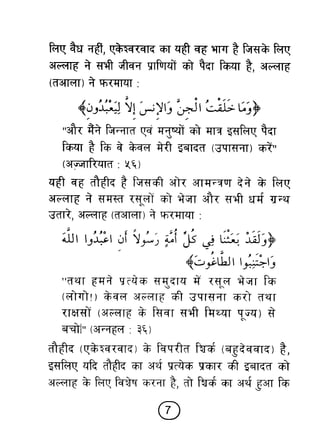 लिए वैध नहीं, एकेश्वरवाद का यही वह भाग है जिसके लिए
अल्लाह ने सभी जीवन प्राणियों को पैदा किया है, अल्लाह
(तआला) ने फरमाया :
﴿وَمَا خَلَقْتُ الْجِنَّ وَالْإِنسَ إِلَّا لِيَعْبُدُونِ﴾
"और मैंने जिन्नात एवं मनुष्यों को मात्र इसलिए पैदा
किया है कि वे केवल मेरी इबादत (उपासना) करें"
(अज़्ज़ारियात : ५६)
यही वह तौहीद है जिसकी ओर आमन्त्रण देने के लिए
अल्लाह ने समस्त रसूलों को भेजा और सभी धर्म ग्रन्थ
उतारे, अल्लाह (तआला) ने फरमाया :
﴿وَلَقَدْ بَعَثْنَا فِي كُلِّ أُمَّةٍ رَسُولاً أَنِ اعْبُدُوا اللهَ
وَاجْتَنِبُوا الطَّاغُوتَ﴾
"तथा हमने प्रत्येक समुदाय में रसूल भेजा कि
(लोगो!) केवल अल्लाह की उपासना करो तथा
राक्षसों (अल्लाह के सिवा सभी मिथ्या पूज्य) से
बचो|" (अन्नहल : ३६)
तौहीद (एकेश्वरवाद) के विपरीत शिर्क (बहुदेववाद) है,
इसलिए यदि तौहीद का अर्थ प्रत्येक प्रकार की इबादत को
अल्लाह के लिए विशेष करना है, तो शिर्क का अर्थ हुआ कि
7